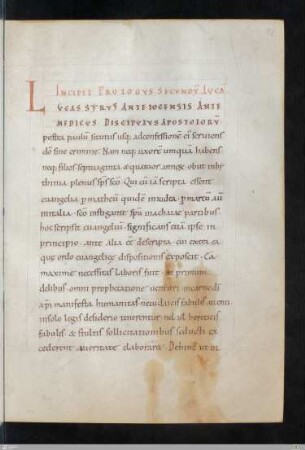 INCIPIT PROLOGUS SECUNDU LUCA
LUCAS SYRUS ANTIOCENSIS ARTE
MEDICUS DISCIPULUS APOSTOLORU
postea paulu secutus usq; ad confessione ei seruiens
do sine crimine. Nam neq; uxore umqua habens
neq; filios septuaginta & quattuor annoR obiit in bi
thinia plenus sps sco. Qui cu ia scripta essent
euangelia p matheu quide in iudea p marcu au
in italia sco instigante spu in achaiae partibus
hoc scripsit euangeliu significans etia ipse in
principio ante alia ee descripta cui extra ea
que ordo euangelice dispositionis exposcit. Ea
maxime necessitas laboris fuit ut primum
delibus omni prophetatione uenturi in carne di
manifesta humanitas ne iudaicis fabulis attenti
in solo legis desiderio tenerentur nel ul hereticis
fabulis & stultis sollicitationibus seducti ex
cederent a ueritate elaborar&. Dehinc ut in